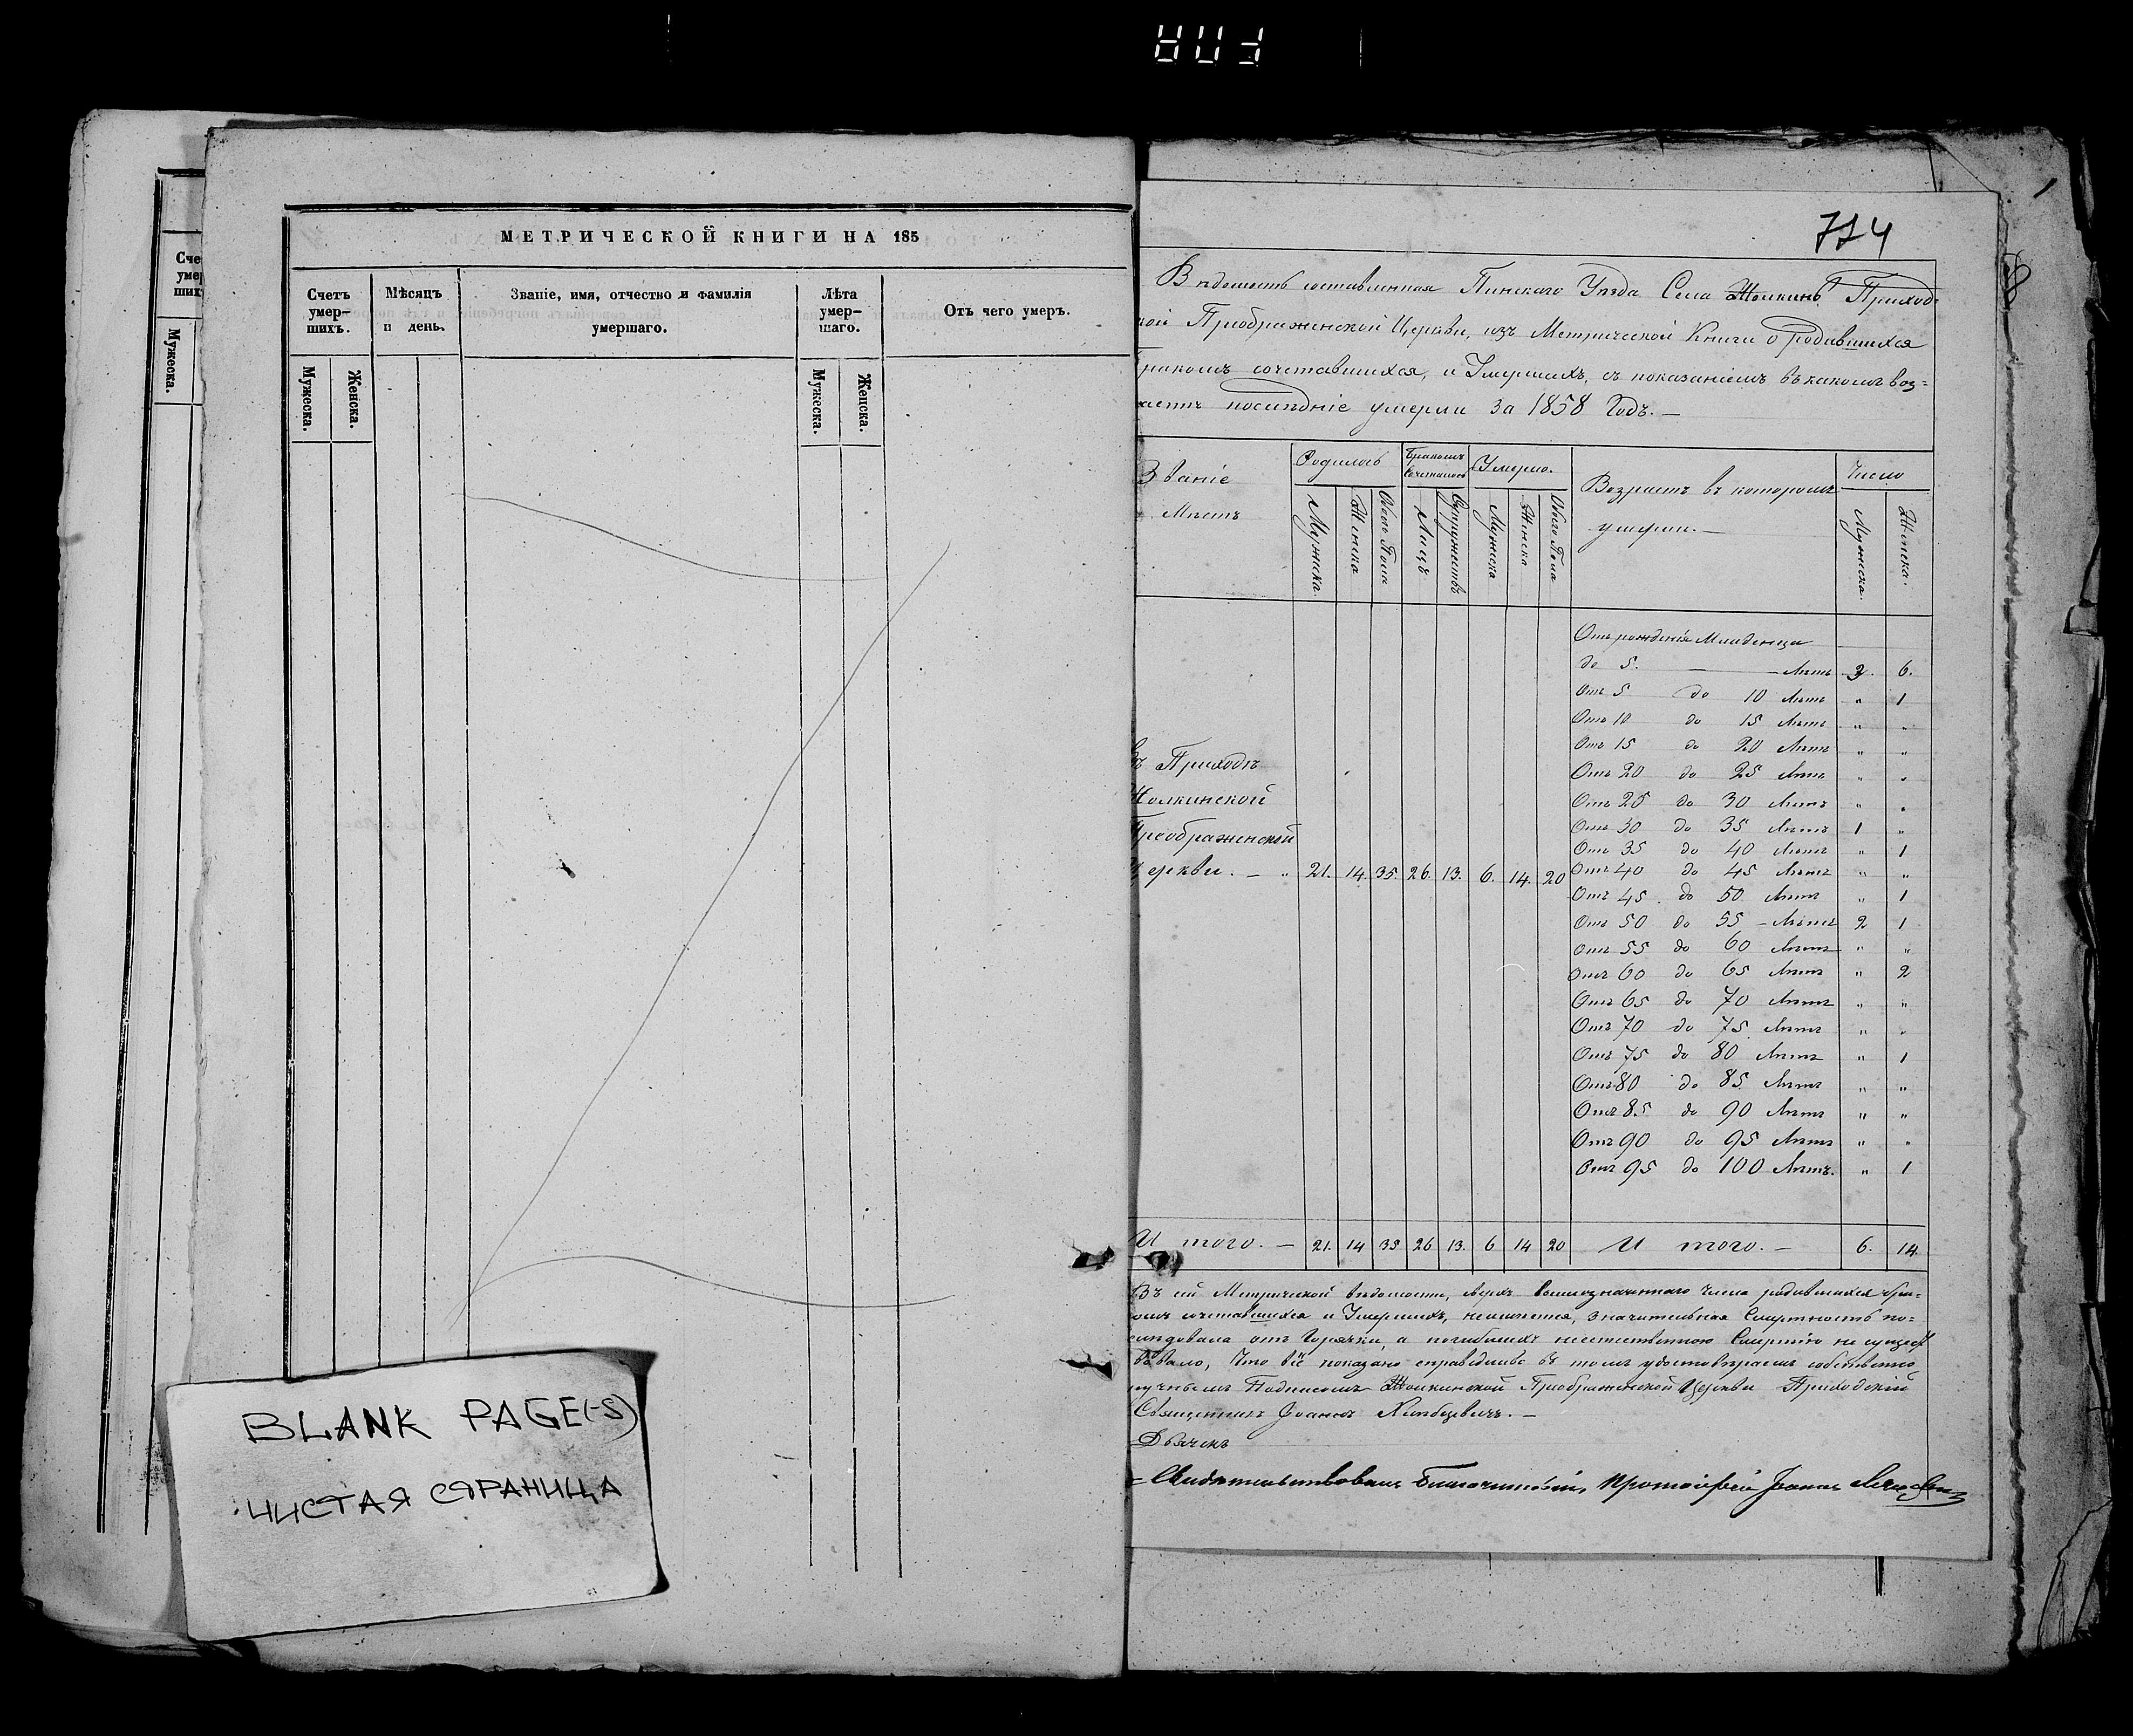 МЕТРИЧЕСКОЙ КНИГИ НА 185
Счетъ умер-шихъ.
Мѣсяцъ и день.
Званіе, имя, отчество и фамилія умершаго.
Лѣта умер-шаго.
Отъ чего умеръ.
Мужеска.
Женска.
Мужеска.
Женска.
Мужеска.
BLANK PAGE(-S)
ЧИСТАЯ СТРАНИЦА
774
Вѣдомость составленная Пинскаго Уѣзда Села Жолкинъ Приход
ской Преображенской Церкви, изъ Метрической Книги о родившихся
бракомъ сочетавшихся, и Умершихъ, съ показаніемъ въ какомъ воз=
растѣ послѣдніе умерли за 1858 Годъ. —
Званіе Мѣстъ
Родилось
Бракомъ Сочеталось
Умерло.
Возрастъ въ которомъ умерли. —
Число
Мужска
Женска
Обоего Пола
Лицъ
Супружествъ
Мужска
Женска
Обоего Пола
Мужска.
Женска.
Отъ рожденія Младенца
до 5. — Лѣтъ 2. 6.
Отъ 5 до 10 Лѣтъ " 1
Отъ 10 до 15 Лѣтъ " "
Отъ 15 до 20 Лѣтъ " "
Отъ 20 до 25 Лѣтъ " "
Отъ 25 до 30 Лѣтъ " "
Отъ 30 до 35 Лѣтъ 1 "
Отъ 35 до 40 Лѣтъ " 1
Отъ 40 до 45 Лѣтъ " "
Отъ 45 до 50 Лѣтъ " 1
Отъ 50 до 55 — Лѣтъ 2 1
Отъ 55 до 60 Лѣтъ " "
Отъ 60 до 65 Лѣтъ " 2
Отъ 65 до 70 Лѣтъ " "
Отъ 70 до 75 Лѣтъ " "
Отъ 75 до 80 Лѣтъ " 1
Отъ 80 до 85 Лѣтъ " "
Отъ 85 до 90 Лѣтъ " "
Отъ 90 до 95 Лѣтъ " "
Отъ 95 до 100 Лѣтъ. " 1
Въ Приходѣ
Жолкинской
Преображенской
Церкви. — " 21. 14. 35. 26. 13. 6. 14. 20
И того. — 21. 14 35 26 13. 6 14 20 И того. — 6. 14
Въ сей Метрической вѣдомости, сверхъ вышеозначеннаго числа родившихся бра=
комъ сочетавшихся и Умершихъ, неимѣется, значительная Смертность по=
слѣдовала отъ Горячки, а погибшихъ неестественною Смертію не сущест
вовало, Что всё показано справедливо въ томъ удостовѣряемъ собственно
ручнымъ Подписомъ Жолкинской Преображенской Церкви Приходскій
Священникъ Іоаннъ —
Дьячекъ
Свидѣтельствовалъ Благочинный, Протоіерей Іоаннъ